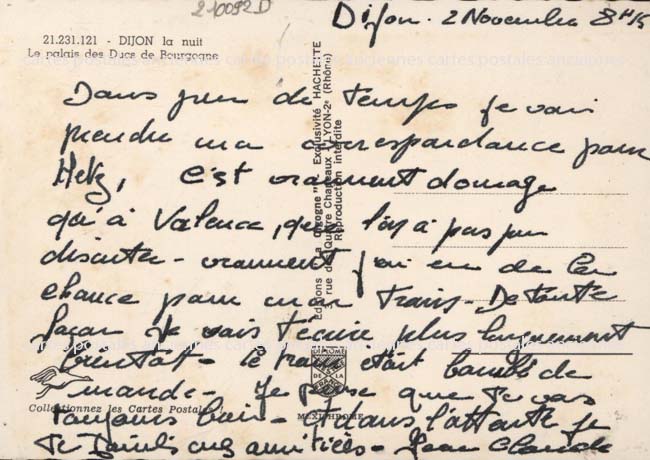 210092 D
Dijon. 2 Novembre 8H15
21.231.121 - DIJON la nuit
Le palais des Ducs de Bourgogne
Dans peu de temps je vais
prendre ma correspondance pour
Metz, C'est vraiment domage
qu'à Valence, que l'on a pas pu
discuter - vraiment j'ai eu de la
chance pour mon train - De toute
façon je vais t'écrire plus longuement
bientôt - le train était bondé de
monde - Je pense que tu vas
toujours bien - Dans l'attente je
te mes amitiés - Jean Claude
Editions "La Cigogne" Exclusivité HACHETTE
3, rue des Quatre Chapeaux LYON-2e (Rhône)
Reproduction interdite
DIPLOME
DE LA
Collectionnez les Cartes Postales !
MEXICHROME
cartes postales anciennes cartes postales anciennes